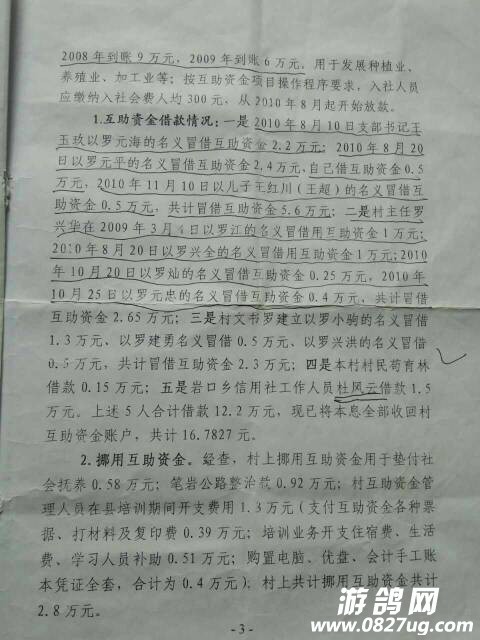 2008年到账9万元，2009年到账6万元，用于发展种植业、
养殖业、加工业等；按互助资金项目操作程序要求，入社人员
应缴纳入社会费人均300元，从2010年8月起开始放款。
1.互助资金借款情况：一是2010年8月10日支部书记王
玉玖以罗元海的名义冒借互助资金2.2万元；2010年8月20
日以罗元平的名义冒借互助资金2.4万元，自己借互助资金0.5
万元，2010年11月10日以儿子王红川（王超）的名义冒借互
助资金0.5万元，共计冒借互助资金5.6万元；二是村主任罗
兴华在2009年3月4日以罗江的名义冒借用互助资金1万元；
2010年8月20日以罗兴全的名义冒借用互助资金1万元；2010
年10月20日以罗灿的名义冒借互助资金0.25万元，2010年
10月25日以罗元忠的名义冒借互助资金0.4万元，共计冒借
互助资金2.65万元；三是村文书罗建立以罗小驹的名义冒借
1.3万元、以罗建勇名义冒借0.5万元、以罗兴洪的名义冒借
0.5万元，共计冒借互助资金2.3万元；四是本村村民苟育林
借款0.15万元；五是岩口乡信用社工作人员杜风云借款1.5
万元。上述5人合计借款12.2万元，现已将本息全部收回村
互助资金账户，共计16.7827元。
2.挪用互助资金。经查，村上挪用互助资金用于垫付社
会抚养0.58万元；笔岩公路整治款0.92万元；村互助资金管
理人员在县培训期间开支费用1.3万元（支付互助资金各种票
据、打材料及复印费0.39万元；培训业务开支住宿费、生活
费、学习人员补助0.51万元；购置电脑、优盘、会计手工账
本凭证全套，合计为0.4万元），村上共计挪用互助资金共计
2.8万元。
- 3 -
游鸽网
www.0827ug.com